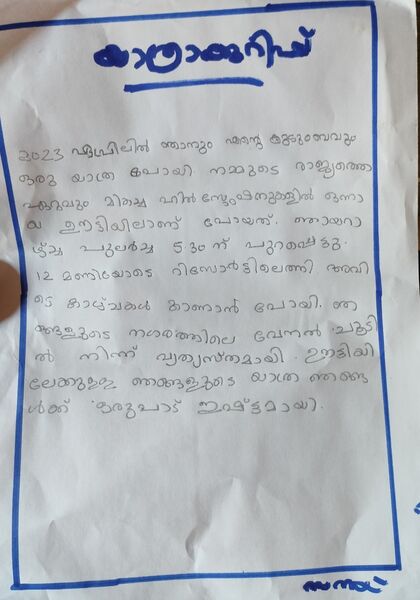 യാത്രാക്കുറിപ്പ്
2023 ഏപ്രിലിൽ ഞാനും എന്റെ കുടുംബവും
ഒരു യാത്ര പോയി നമ്മുടെ രാജ്യത്തെ
ഏറ്റവും മികച്ച ഹിൽ സ്റ്റേഷനുകളിൽ ഒന്നാ
യ ഊട്ടിയിലാണ് പോയത്. ഞായറാ
ഴ്ച്ച പുലർച്ച 5 30 ന് പുറപ്പെട്ടു.
12 മണിയോടെ റിസോർട്ടിലെത്തി അവി
ടെ കാഴ്ചകൾ കാണാൻ പോയി. ഞ
ങ്ങളുടെ നഗരത്തിലെ വേനൽ ചൂടി
ൽ നിന്ന് വ്യത്യസ്തമായി. ഊട്ടിയി
ലേക്കുള്ള ഞങ്ങളുടെ യാത്ര ഞങ്ങ
ൾക്ക് ഒരുപാട് ഇഷ്ട്ടമായി.